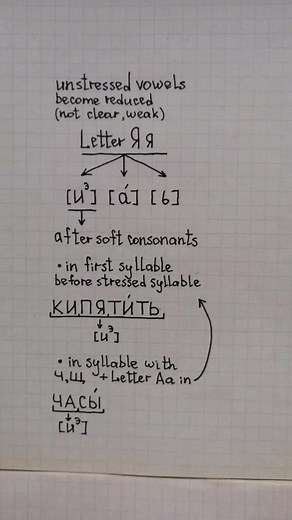 unstressed vowels
become reduced
(not clear, weak)
Letter Я я
[иэ] [а́] [ь]
after soft consonants
• in first syllable
before stressed syllable
КИ,ПЯ,ТИ́ТЬ
[иэ]
• in syllable with
Ч,Щ, + Letter Аа in
ЧА,СЫ́
[иэ]